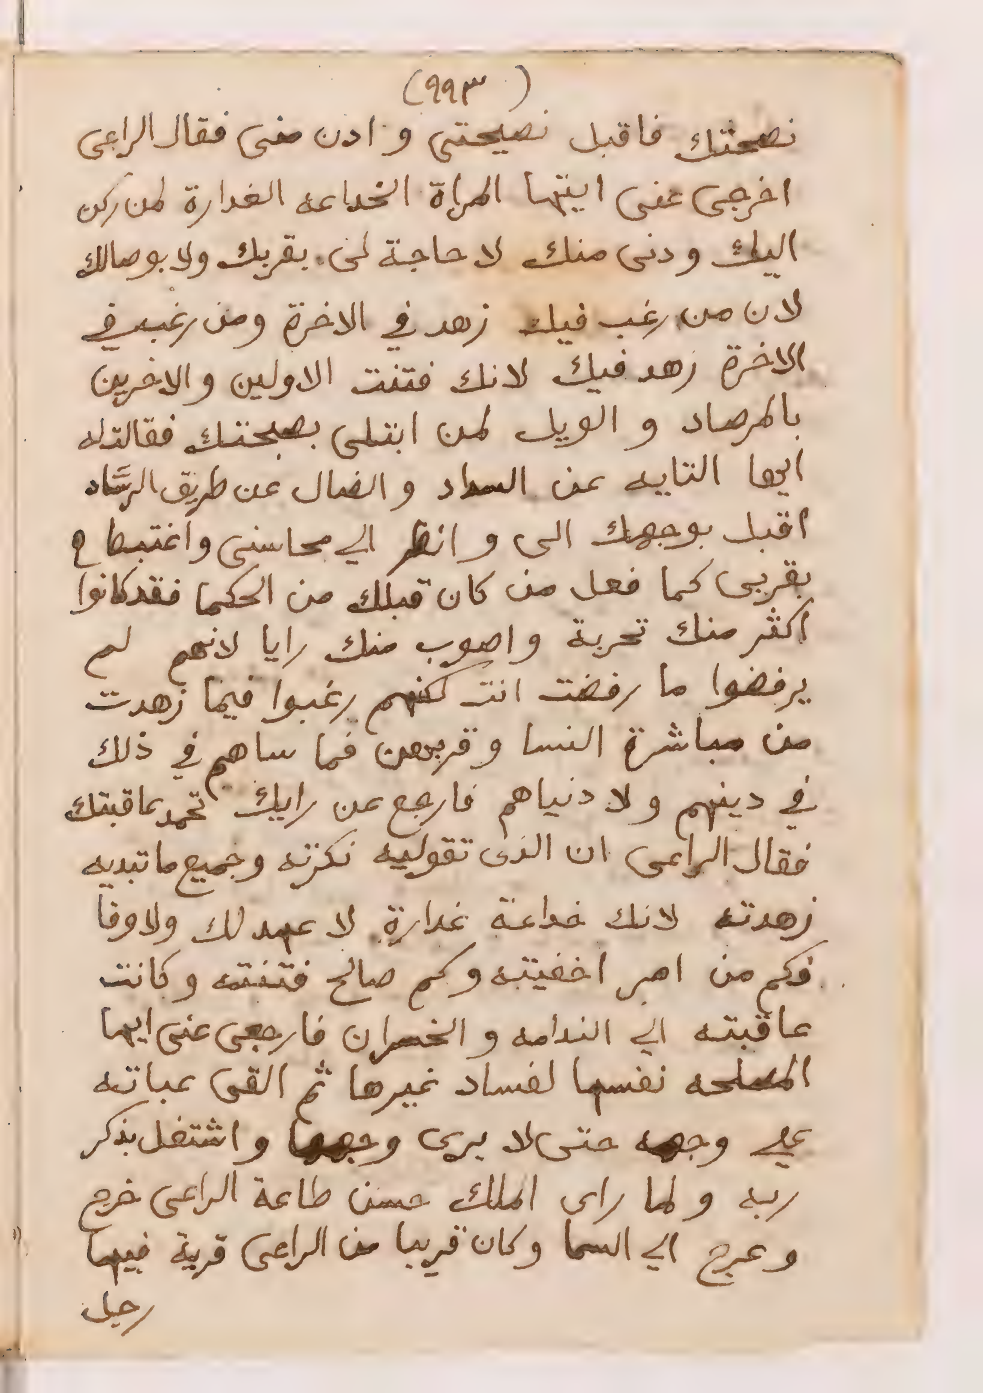 (٩٩٣)
نصحتك فاقبل نصيحتى و ادن منى فقال الراعى
اخرجى عنى ايتها المراة الخداعه الغدارة لمن ركن
اليك و دنى منك لا حاجة لى بقربك ولا بوصالك
لان من رغب فيك زهد في الاخرة ومن رغب في
الاخرة زهد فيك لانك فتنت الاولين والاخرين
بالمرصاد و الويل لمن ابتلى بصحبتك فقالت له
ايها التايه عن السداد و الضال عن طريق الرشاد
اقبل بوجهك الى و انظر الي محاسنى واغتبط
بقربى كما فعل من كان قبلك من الحكما فقد كانوا
اكثر منك تحربة واصوب منك رايا لانهم لم
يرفضوا ما رفضت انت لكنهم رغبوا فيما زهدت
من مباشرة النسا و قربهن فما ساهم في ذلك
في دينهم ولا دنياهم فارجع عن رايك تحمد عاقبتك
فقال الراعى ان الذى تقوليه نكرته وجميع ما تبديه
زهدته لانك خداعة غدارة لا عهد لك ولا وفا
فكم من امر اخفيته وكم صالح فتنته وكانت
عاقبته الي الندامه و الخسران فارجعى عنى ايها
المصلحه نفسها لفساد غيرها ثم القى عباته
علي وجهه حتى لا يرى وجهها و اشتغل بذكر
ربه و لما راى الملك حسن طاعة الراعى خرج
وعرج الي السما وكان قريبا من الراعى قرية فيها
رجل